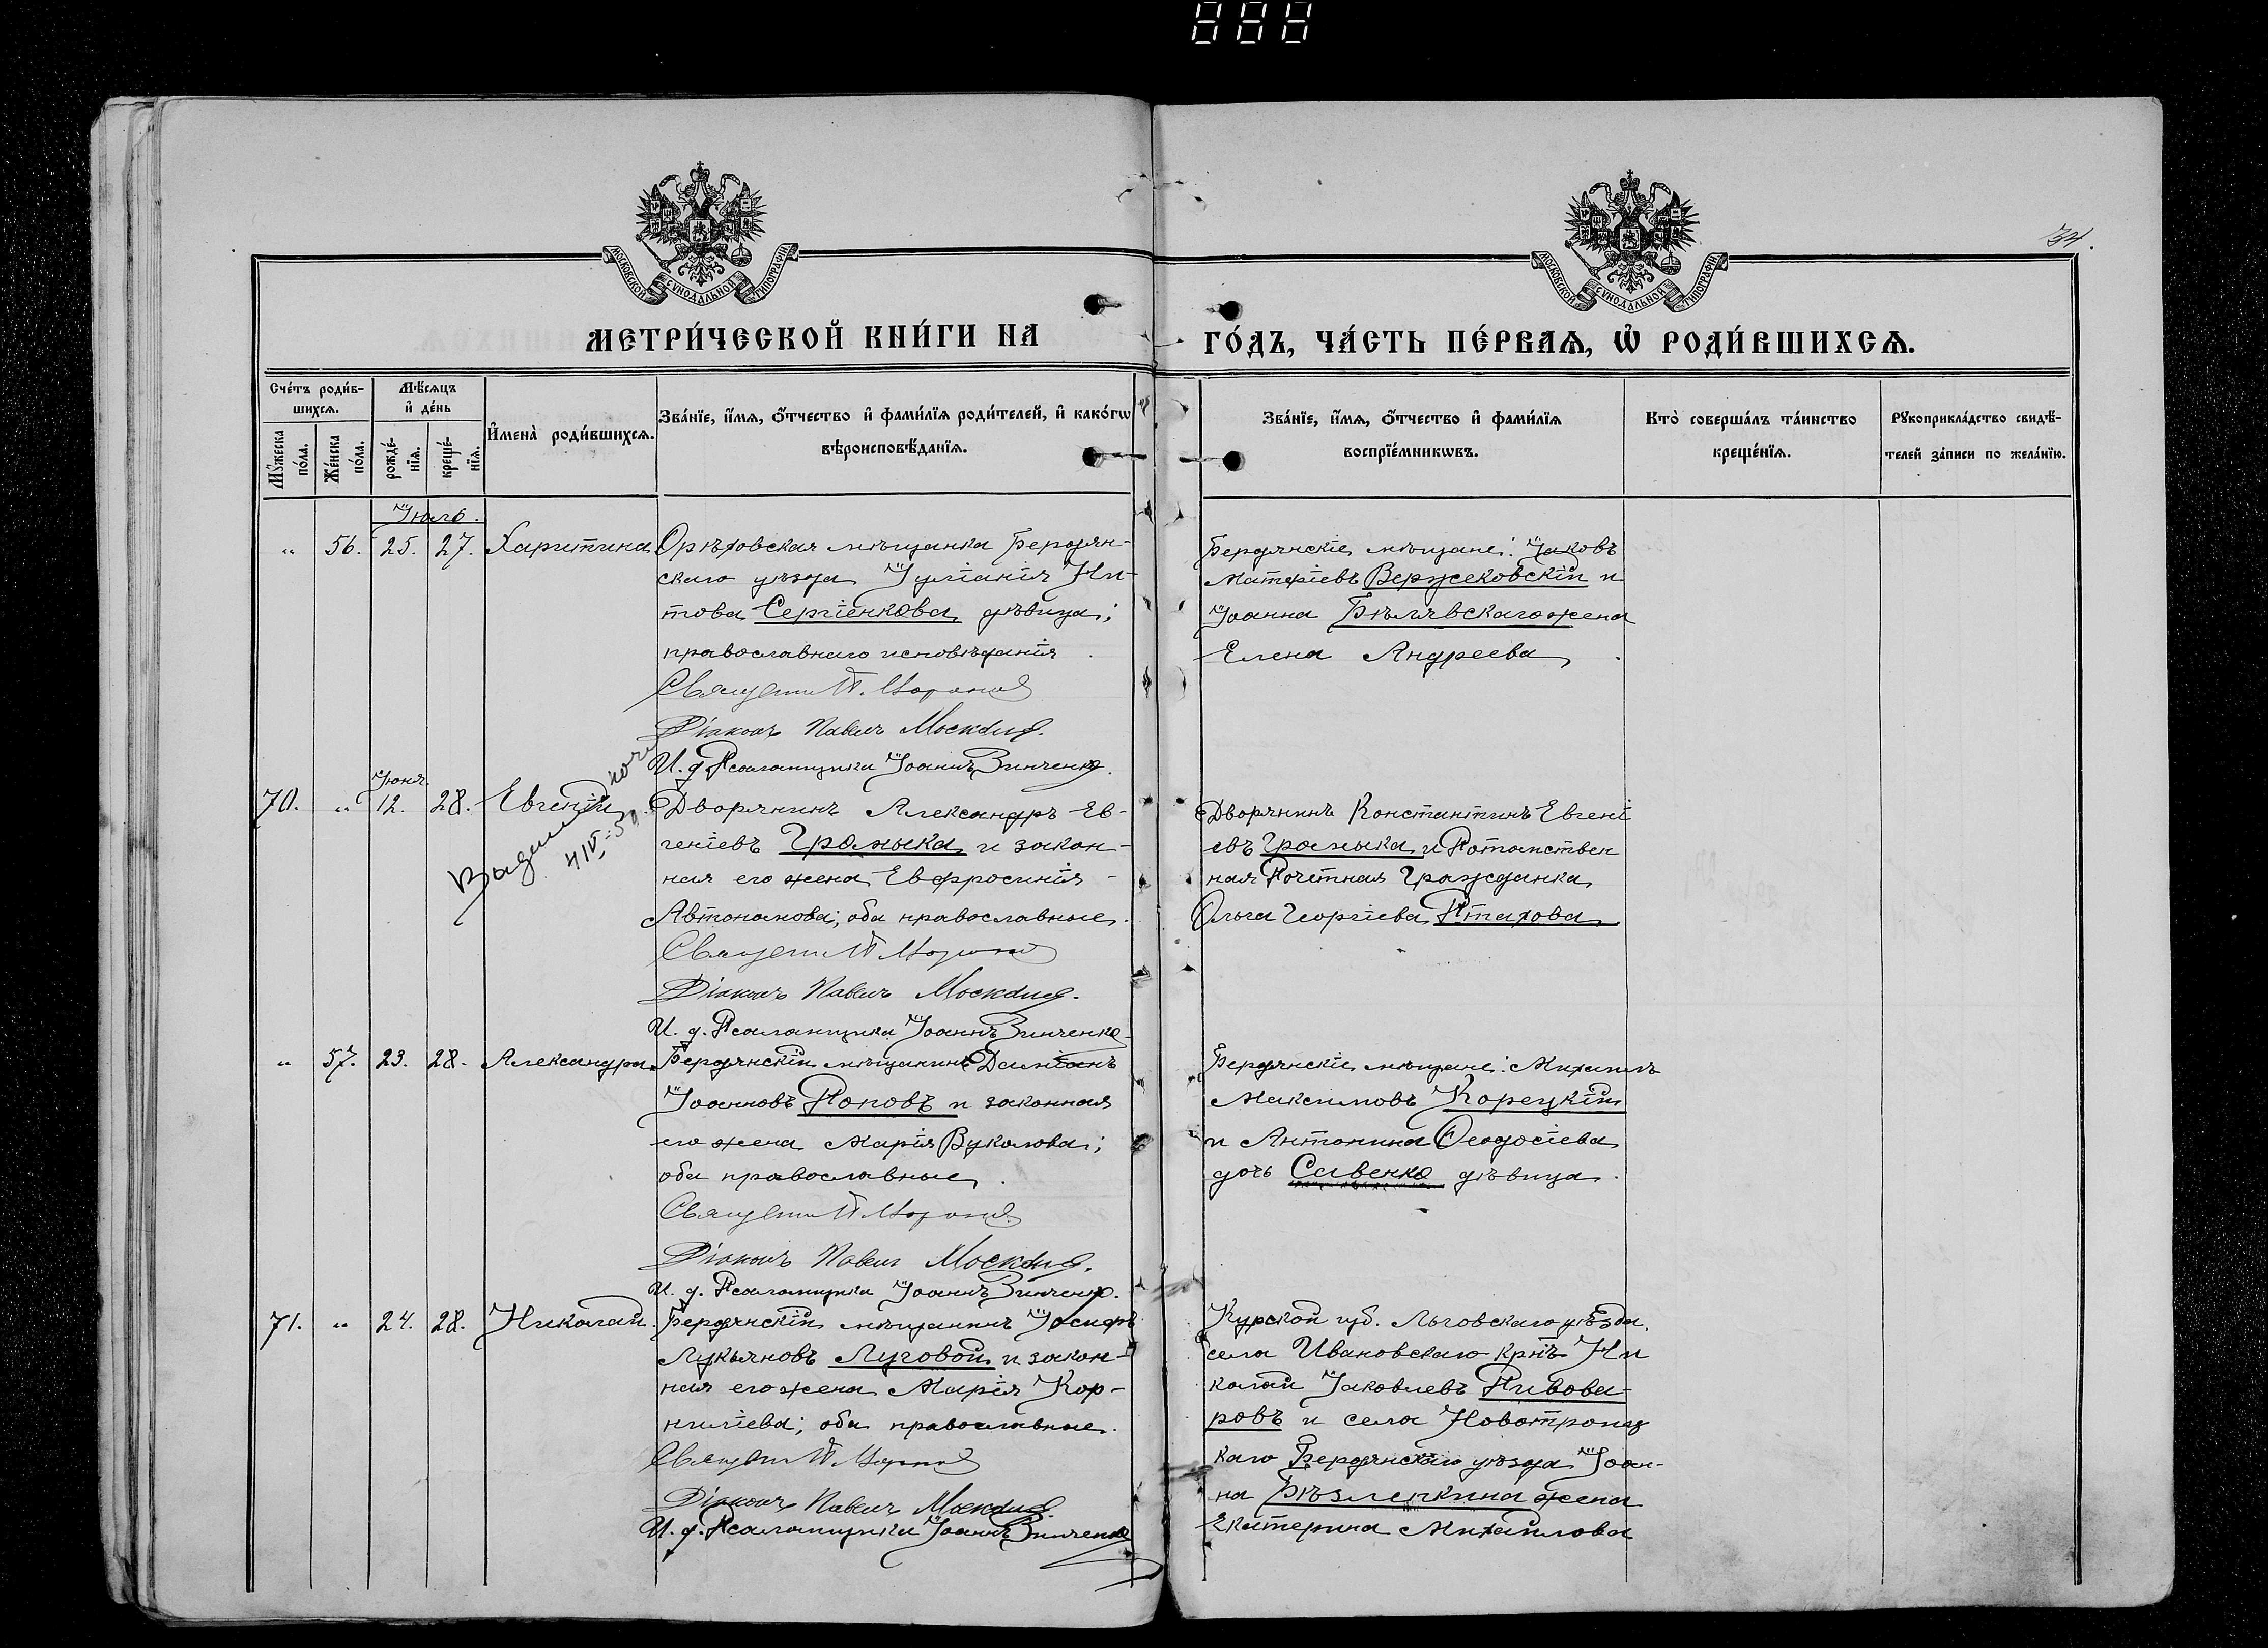 34.
МОСКОВСКОЙ СѴНОДАЛЬНОЙ ТИПОГРАФІИ
МОСКОВСКОЙ СѴНОДАЛЬНОЙ ТИПОГРАФІИ
МЕТРИ́ЧЕСКОЙ КНИ́ГИ НА
ГО́ДЪ, ЧА́СТЬ ПЕ́РВАѦ, Ѡ҆ РОДИ́ВШИХСѦ.
Сче́тъ роди́в-
шихсѧ.
Мѣ́сѧцъ
и҆ де́нь
Мꙋ́жеска
по́ла.
Же́нска
по́ла.
рожде́-
нїѧ.
креще́-
нїѧ.
И҆мена̀ роди́вшихсѧ.
Зва́нїе, и҆́мѧ, ѻ҆́тчество и҆ фами́лїѧ роди́телей, и҆ како́гѡ
вѣроисповѣ́данїѧ.
Зва́нїе, и҆́мѧ, ѻ҆́тчество и҆ фами́лїѧ
воспрїе́мникѡвъ.
Кто̀ соверша́лъ та́инство
креще́нїѧ.
Рꙋкоприкла́дство свидѣ́-
телей за́писи по жела́нїю.
Іюль.
" 56. 25. 27. Харитина
Орѣховская мѣщанка Бердян-
скаго уѣзда Іуліанія Ти-
това Сергіенкова дѣвица;
православнаго исповѣданія.
Священ. П.
Діаконъ Павелъ
И. д. Псаломщика Іоаннъ Зинченко.
Бердянскіе мѣщане: Іаковъ
Матѳіевъ Вержековскій и
Іоанна Бѣлявскаго жена
Елена Андреева.
Іюня
70. " 12. 28. Евгеній
Дворянинъ Александръ Ев-
геніевъ Громыка и закон-
ная его жена Евфросинія
Автономова; оба православные.
Священ. П.
Діаконъ Павелъ
И. д. Псаломщика Іоаннъ Зинченко
Дворянинъ Константинъ Евгені
евъ Громыка и Потомствен
ная Почетная Гражданка
Ольга Георгіева Птахова
" 57. 23. 28. Александра
Бердянскій мѣщанинъ Даміанъ
Іоанновъ Поповъ и законная
его жена Марія Вуколова;
оба православные.
Священ. П.
Діаконъ Павелъ
И. д. Псаломщика Іоаннъ Зинченко.
Бердянскіе мѣщане: Михаилъ
Максимовъ Корецкій
и Антонина Ѳеодосіева
дочь Савенко дѣвица.
71. " 24. 28. Николай
Бердянскій мѣщанинъ Іосифъ
Лукьяновъ Луговой и закон-
ная его жена Марія Кор-
ниліева; оба православные.
Священ. П.
Діаконъ Павелъ
И. д. Псаломщика Іоаннъ Зинченко
Курской губ. Льговскаго уѣзда,
села Ивановскаго крнъ Ни
колай Іаковлевъ Пивова-
ровъ и села Новотроиц
каго Бердянскаго уѣзда Іоан-
на жена
Екатерина Михайлова